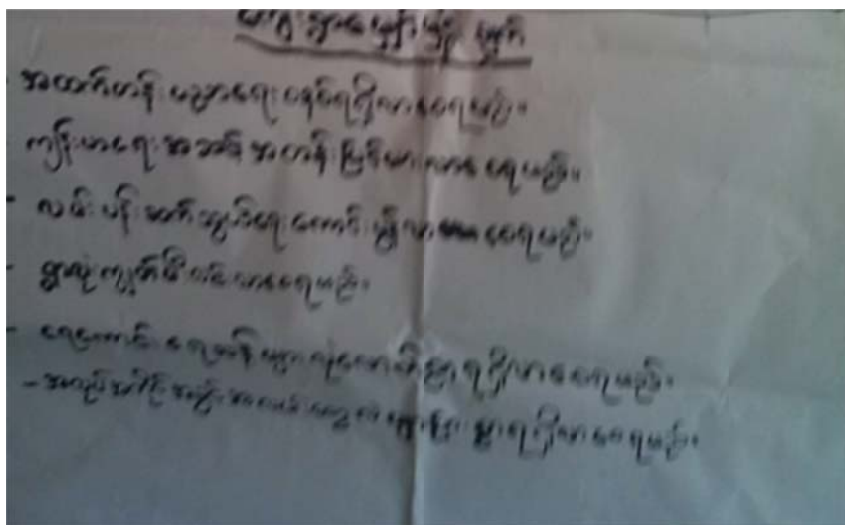 အထက်တန်း ပညာရေး စနစ်ရရှိလာစေရမည်။
- ကျန်းမာရေးအဆင့်အတန်းမြင့်မားလာစေရမည်။
- လမ်းပန်းဆက်သွယ်ရေးကောင်းမွန်လာစေရမည်။
- ရွာလုံးကျွတ်မီးလင်းလာစေရမည်။
- ရေကောင်းရေသန့် လုံလောက်စွာရရှိလာစေရမည်။
- အလုပ်အကိုင်အခွင့်အလမ်း ရရှိလာစေရမည်။